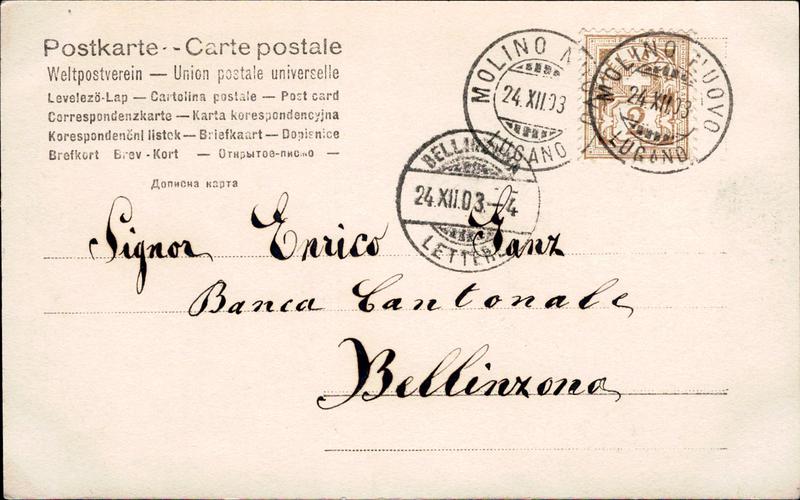 Postkarte - - Carte postale
Weltpostverein — Union postale universelle
Levelező-Lap — Cartolina postale — Post card
Correspondenzkarte — Karta korespondencyjna
Korespondenční listek — Briefkaart — Dopisnice
Brefkort Brev-Kort — Открытое-писмо —
Дописна карта
MOLINO NUOVO
24.XII.03
LUGANO
MOLINO NUOVO
24.XII.03
LUGANO
2
BELLINZONA
24.XII.03.–4
LETTERE
Signor Enrico Ganz
Banca Cantonale
Bellinzona